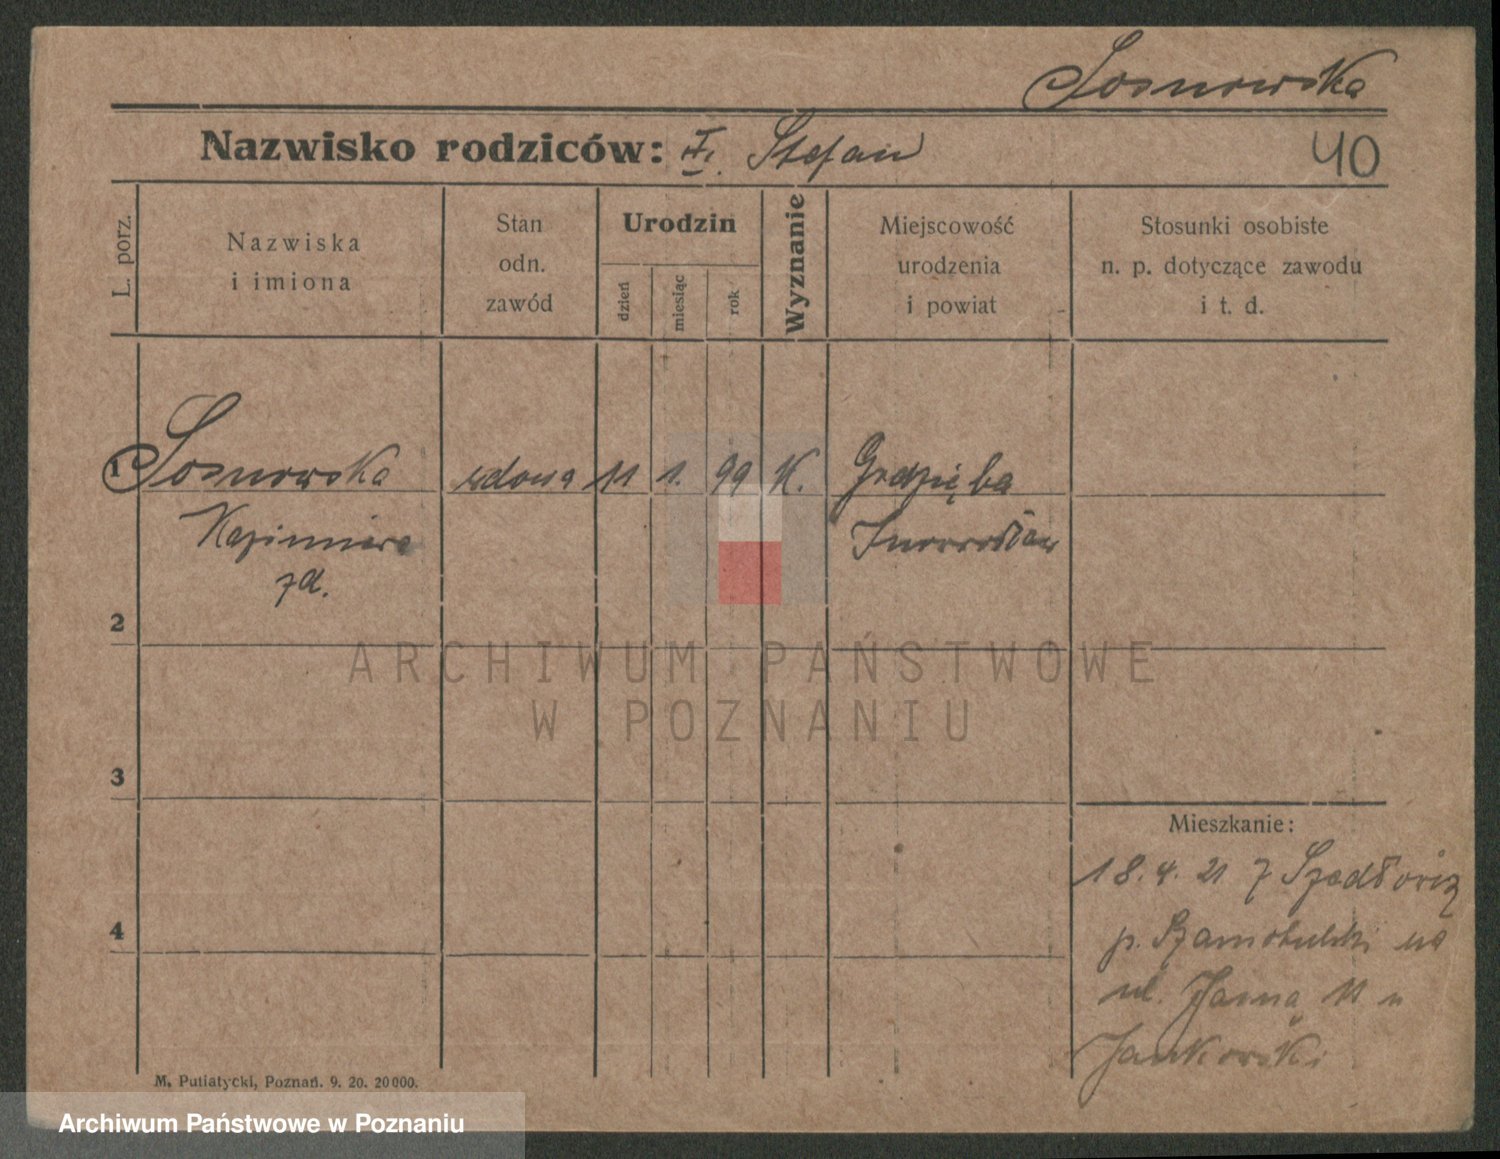 Sosnowska
Nazwisko rodziców: Stefan
40
L. porz.
Nazwiska
i imiona
Stan
odn.
zawód
Urodzin
dzień
miesiąc
rok
Wyznanie
Miejscowość
urodzenia
i powiat
Stosunki osobiste
n. p. dotyczące zawodu
i t. d.
1 Sosnowska wdowa 11 1. 99 K.
Kazimiera
zd.
2
ARCHIWUM PAŃSTWOWE
W POZNANIU
3
Mieszkanie:
18. 4. 21 z
4
p. Szamotulski na
ul. 11 u
Jankowski
M. Putiatycki, Poznań. 9. 20. 20000.
Archiwum Państwowe w Poznaniu